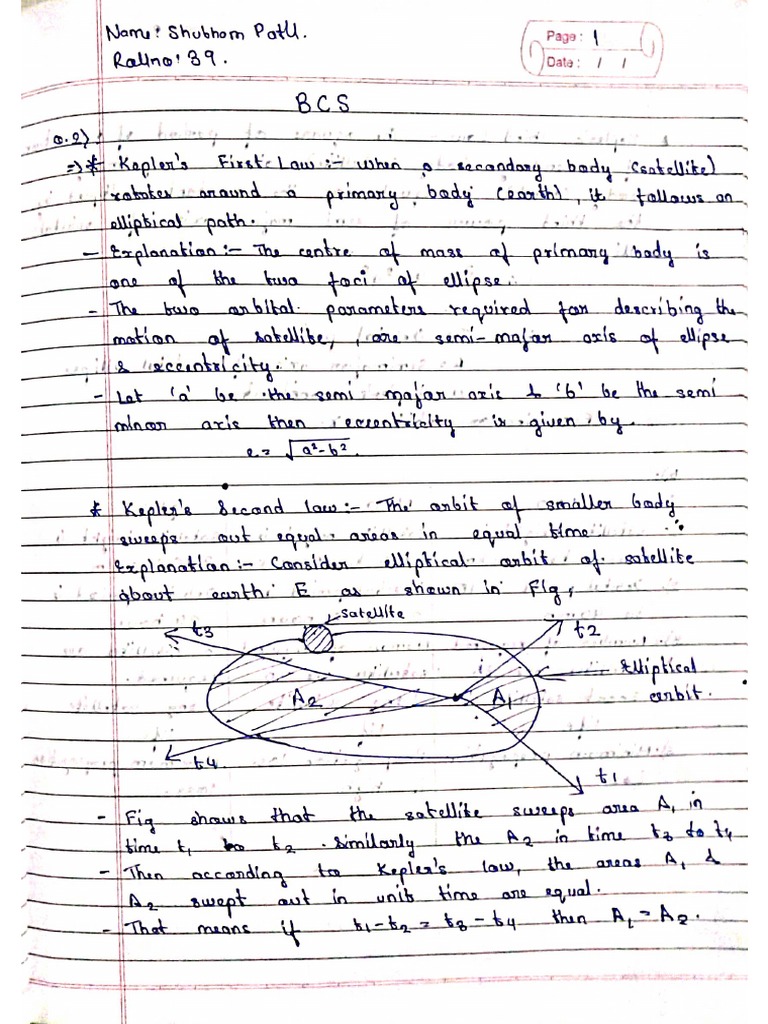 Name: Shubham Patil.
Page: 1
Rollno: 39.
Date: / /
BCS
Q.2)
=> * Kepler's First Law :- When a secondary body (satellite)
rotates around a primary body (earth), it follows an
elliptical path.
- Explanation :- The centre of mass of primary body is
one of the two foci of ellipse.
- The two orbital parameters required for describing the
motion of satellite, are semi-major axis of ellipse
& eccentricity.
- Let 'a' be the semi major axis & 'b' be the semi
minor axis then eccentricity is given by.
e = √a²-b².
* Kepler's Second law :- The orbit of smaller body
sweeps out equal areas in equal time.
Explanation :- Consider elliptical orbit of satellite
about earth E as shown in Fig,
satellite
t3
t2
Elliptical
orbit.
A2
A1
t4.
t1
- Fig shows that the satellite sweeps area A1 in
time t1 to t2. Similarly the A2 in time t3 to t4
- Then according to Kepler's law, the areas A1 &
A2 swept out in unit time are equal.
- That means if t1-t2 = t3-t4 then A1 = A2.